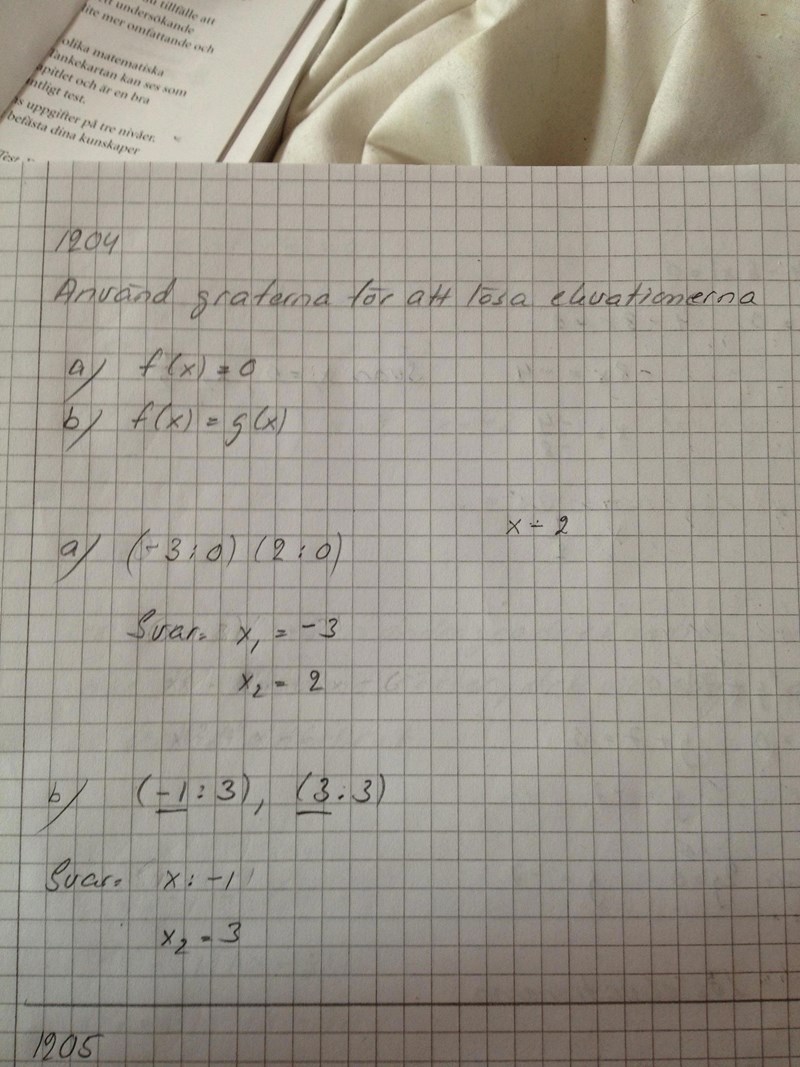 tillfälle att
undersökande
lite mer omfattande och
olika matematiska
Tankekartan kan ses som
apitlet och är en bra
ntligt test.
s uppgifter på tre nivåer.
befästa dina kunskaper
Test
1204
Använd graferna för att lösa ekvationerna
a) f(x) = 0
b) f(x) = g(x)
x = 2
a) (-3:0) (2:0)
Svar: x₁ = -3
x₂ = 2
b) (-1:3), (3:3)
Svar: x: -1
x₂ = 3
1205